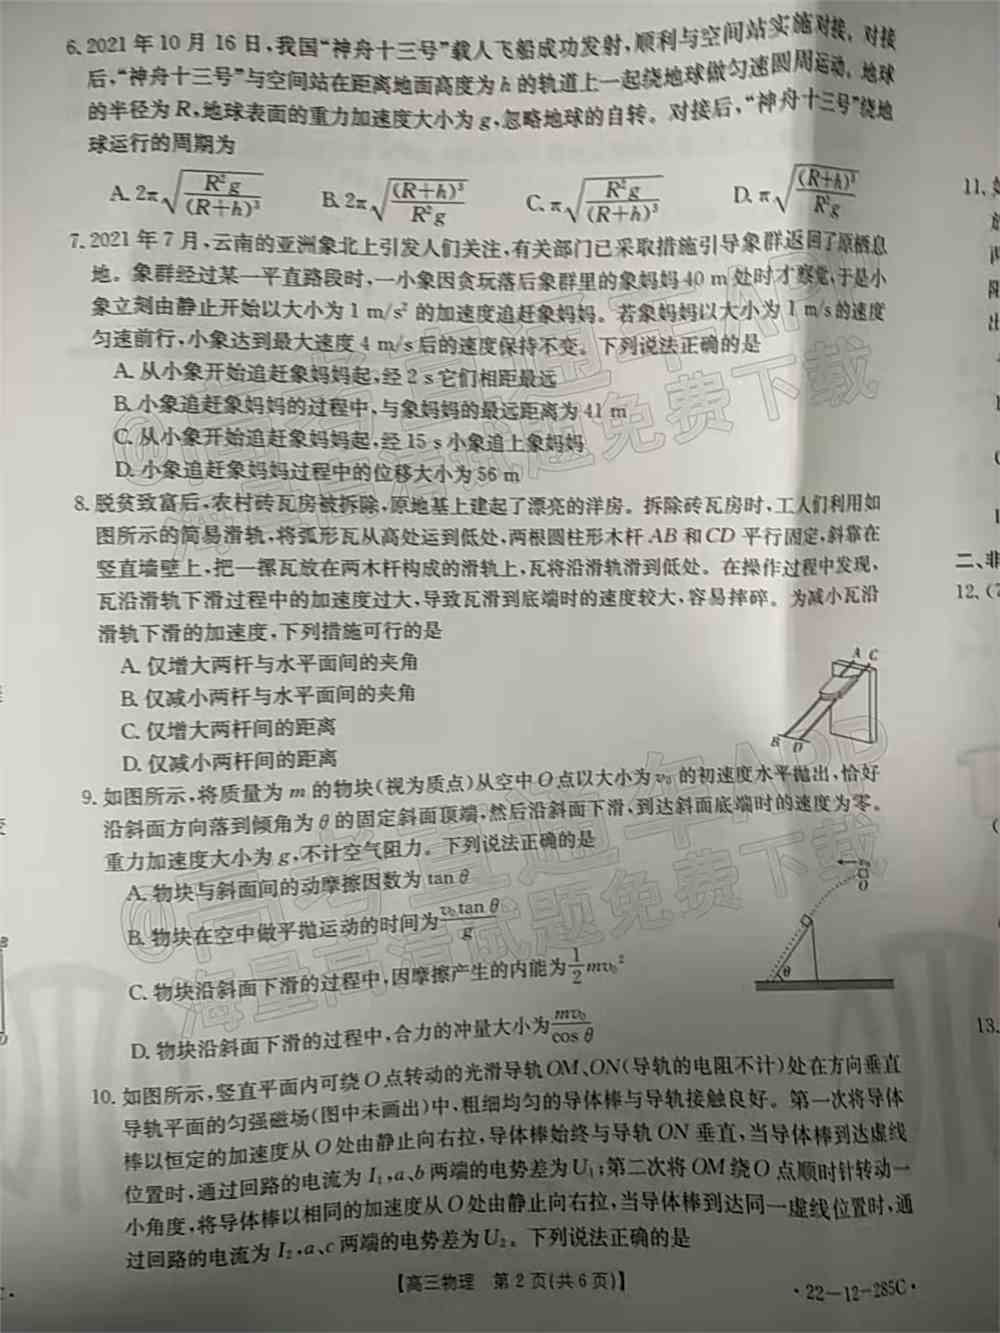 6. 2021 年 10 月 16 日,我国“神舟十三号”载人飞船成功发射,顺利与空间站实施对接。对接
后,“神舟十三号”与空间站在距离地面高度为 h 的轨道上一起绕地球做匀速圆周运动。地球
的半径为 R,地球表面的重力加速度大小为 g,忽略地球的自转。对接后,“神舟十三号”绕地
球运行的周期为
A. 2π√(R²g/(R+h)³) B. 2π√((R+h)³/R²g) C. π√(R²g/(R+h)³) D. π√((R+h)³/R²g)
7. 2021 年 7 月,云南的亚洲象北上引发人们关注,有关部门已采取措施引导象群返回了原栖息
地。象群经过某一平直路段时,一小象因贪玩落后象群里的象妈妈 40 m 处时才察觉,于是小
象立刻由静止开始以大小为 1 m/s² 的加速度追赶象妈妈。若象妈妈以大小为 1 m/s 的速度
匀速前行,小象达到最大速度 4 m/s 后的速度保持不变。下列说法正确的是
A. 从小象开始追赶象妈妈起,经 2 s 它们相距最远
B. 小象追赶象妈妈的过程中,与象妈妈的最远距离为 41 m
C. 从小象开始追赶象妈妈起,经 15 s 小象追上象妈妈
D. 小象追赶象妈妈过程中的位移大小为 56 m
8. 脱贫致富后,农村砖瓦房被拆除,原地基上建起了漂亮的洋房。拆除砖瓦房时,工人们利用如
图所示的简易滑轨,将弧形瓦从高处运到低处,两根圆柱形木杆 AB 和 CD 平行固定,斜靠在
竖直墙壁上,把一摞瓦放在两木杆构成的滑轨上,瓦将沿滑轨滑到低处。在操作过程中发现,
瓦沿滑轨下滑过程中的加速度过大,导致瓦滑到底端时的速度较大,容易摔碎。为减小瓦沿
滑轨下滑的加速度,下列措施可行的是
A. 仅增大两杆与水平面间的夹角
B. 仅减小两杆与水平面间的夹角
C. 仅增大两杆间的距离
D. 仅减小两杆间的距离
A C
B D
9. 如图所示,将质量为 m 的物块(视为质点)从空中 O 点以大小为 v₀ 的初速度水平抛出,恰好
沿斜面方向落到倾角为 θ 的固定斜面顶端,然后沿斜面下滑,到达斜面底端时的速度为零。
重力加速度大小为 g,不计空气阻力。下列说法正确的是
A. 物块与斜面间的动摩擦因数为 tan θ
B. 物块在空中做平抛运动的时间为 v₀tan θ/g
C. 物块沿斜面下滑的过程中,因摩擦产生的内能为 1/2 mv₀²
D. 物块沿斜面下滑的过程中,合力的冲量大小为 mv₀/cos θ
v₀
O
θ
10. 如图所示,竖直平面内可绕 O 点转动的光滑导轨 OM、ON(导轨的电阻不计)处在方向垂直
导轨平面的匀强磁场(图中未画出)中,粗细均匀的导体棒与导轨接触良好。第一次将导体
棒以恒定的加速度从 O 处由静止向右拉,导体棒始终与导轨 ON 垂直,当导体棒到达虚线
位置时,通过回路的电流为 I₁,a、b 两端的电势差为 U₁;第二次将 OM 绕 O 点顺时针转动一
小角度,将导体棒以相同的加速度从 O 处由静止向右拉,当导体棒到达同一虚线位置时,通
过回路的电流为 I₂,a、c 两端的电势差为 U₂。下列说法正确的是
【高三物理 第 2 页(共 6 页)】
·22—12—285C·
@高考直通车APP
海量高清试题免费下载
@高考直通车APP
海量高清试题免费下载
11.
二、非
12. (7
13.